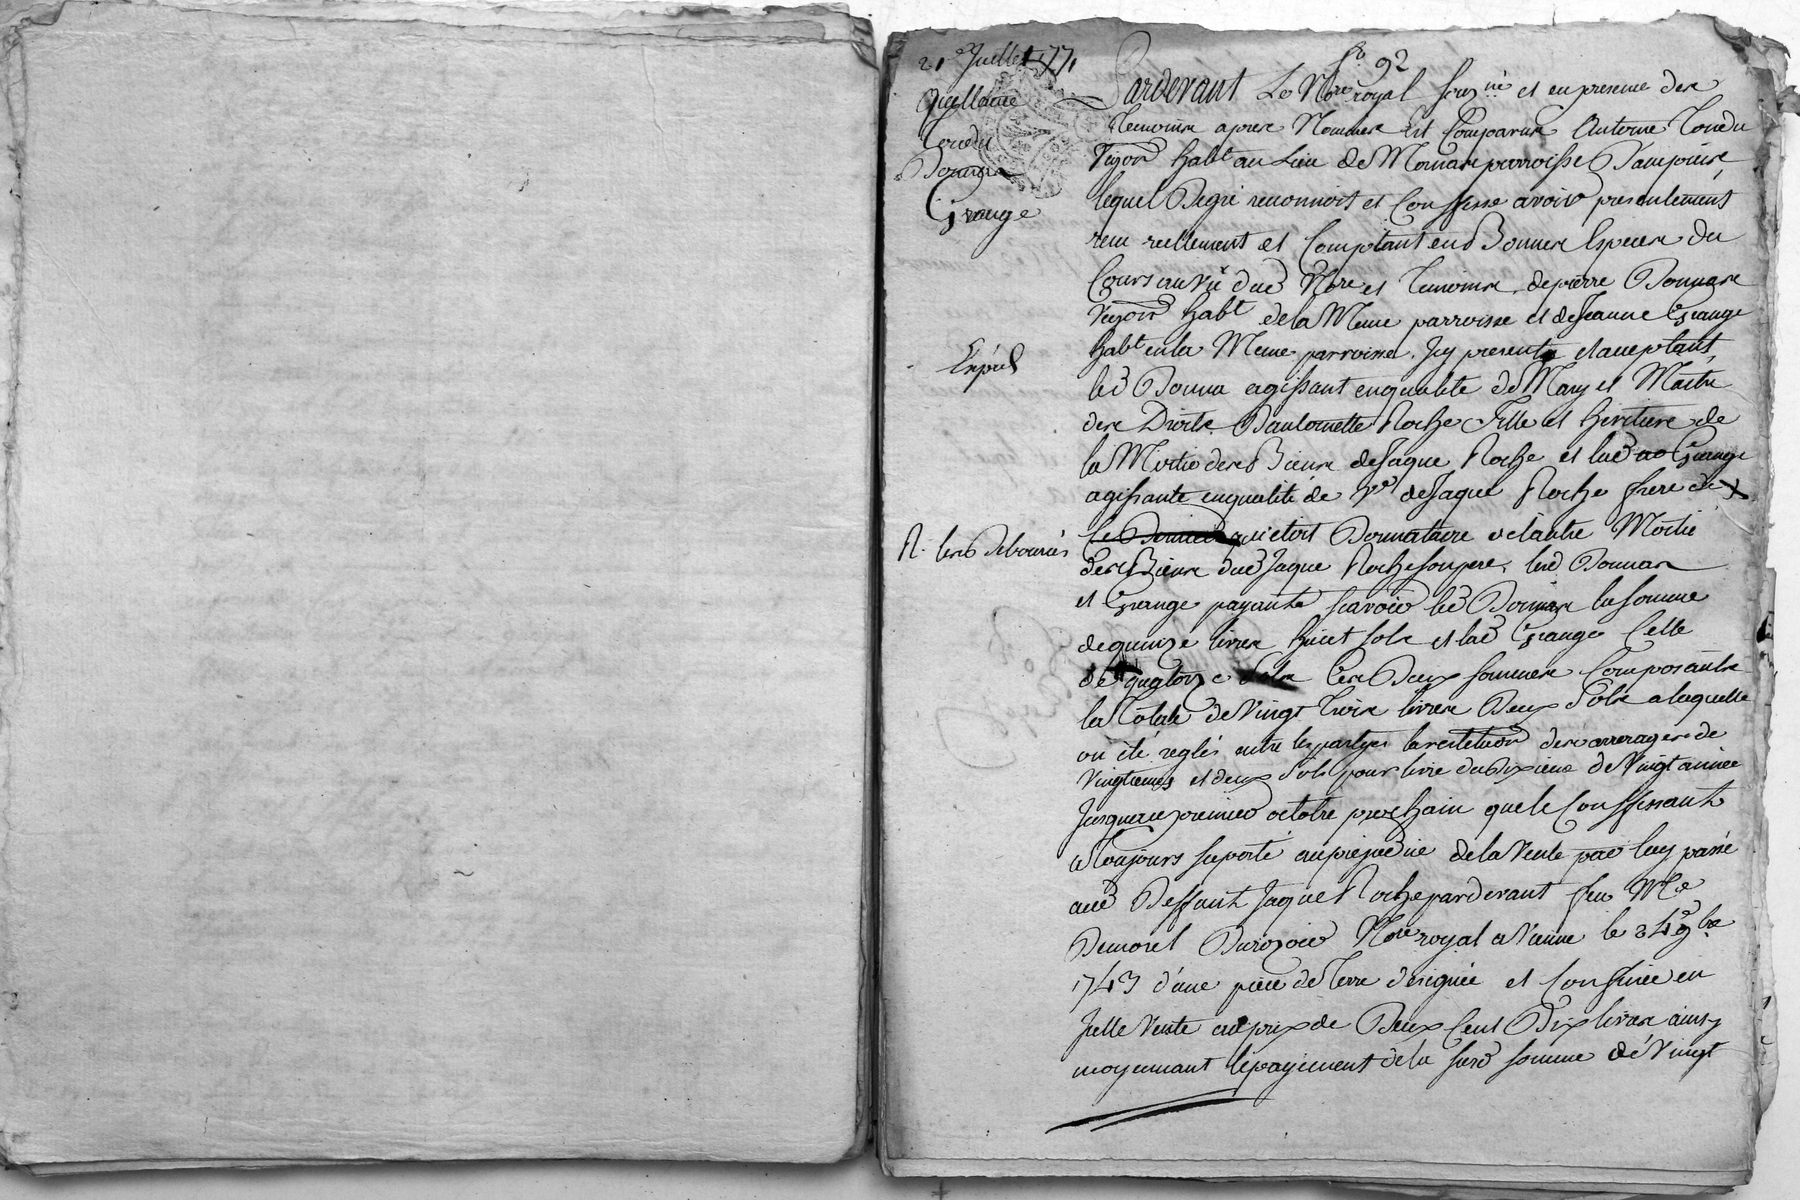 21e Juillet 1771
Quittance
Tourdu
Donnas
Grange
Expéd
R. les Debourcés
fo 92
Pardevant Le Nore royal sousné et en presence des
Temoins apres Nommes Est Comparus Antoine
Vigon habt au Lieu de paroisse
lequel Degré reconnoit et Confesse avoir presentement
reçu reellement et Comptant en Bonnes Especes du
Cours au vû dud Nore et Temoins, de pierre Donnas
Vigon habt de la Meme parroisse et de Jeanne Grange
habt en la Meme parroisse, Icy presents et acceptants,
led Donna agissant en qualité de Mary et Maitre
des Droits Roche fille et heritiere de
la Moitié des Biens de Jaque Roche et lad Grange
agissante en qualité de Ve de Jaque Roche frere de
qui etoit Donnataire de lautre Moitié
des Biens dud Jaque Roche son pere, lesd Donnas
et Grange payants scavoir led Donnas la somme
de quinze livres huit sols et lad Grange Celle
de quatorze sols Ces Deux sommes Composants
la Totale de Vingt Trois livres Deux Sols a laquelle
on été reglés entre les partyes la restitution des arrerages de
Vingtiemes et deux sols pour livre du Dixieme de Vingt année
Jusqu'au premier octobre prochain que le Confessant
a Toujours suporté au prejudice de la Vente par luy passé
aud Deffunt Jaque Roche pardevant feu Me
Demorel Nore royal a Vienne le 24 9bre
1743 d'une piece de Terre designée et Confinée en
Jcelle Vente au prix de Deux Cent Dix livres ainsy
moyennant le payement de la susd somme de Vingt